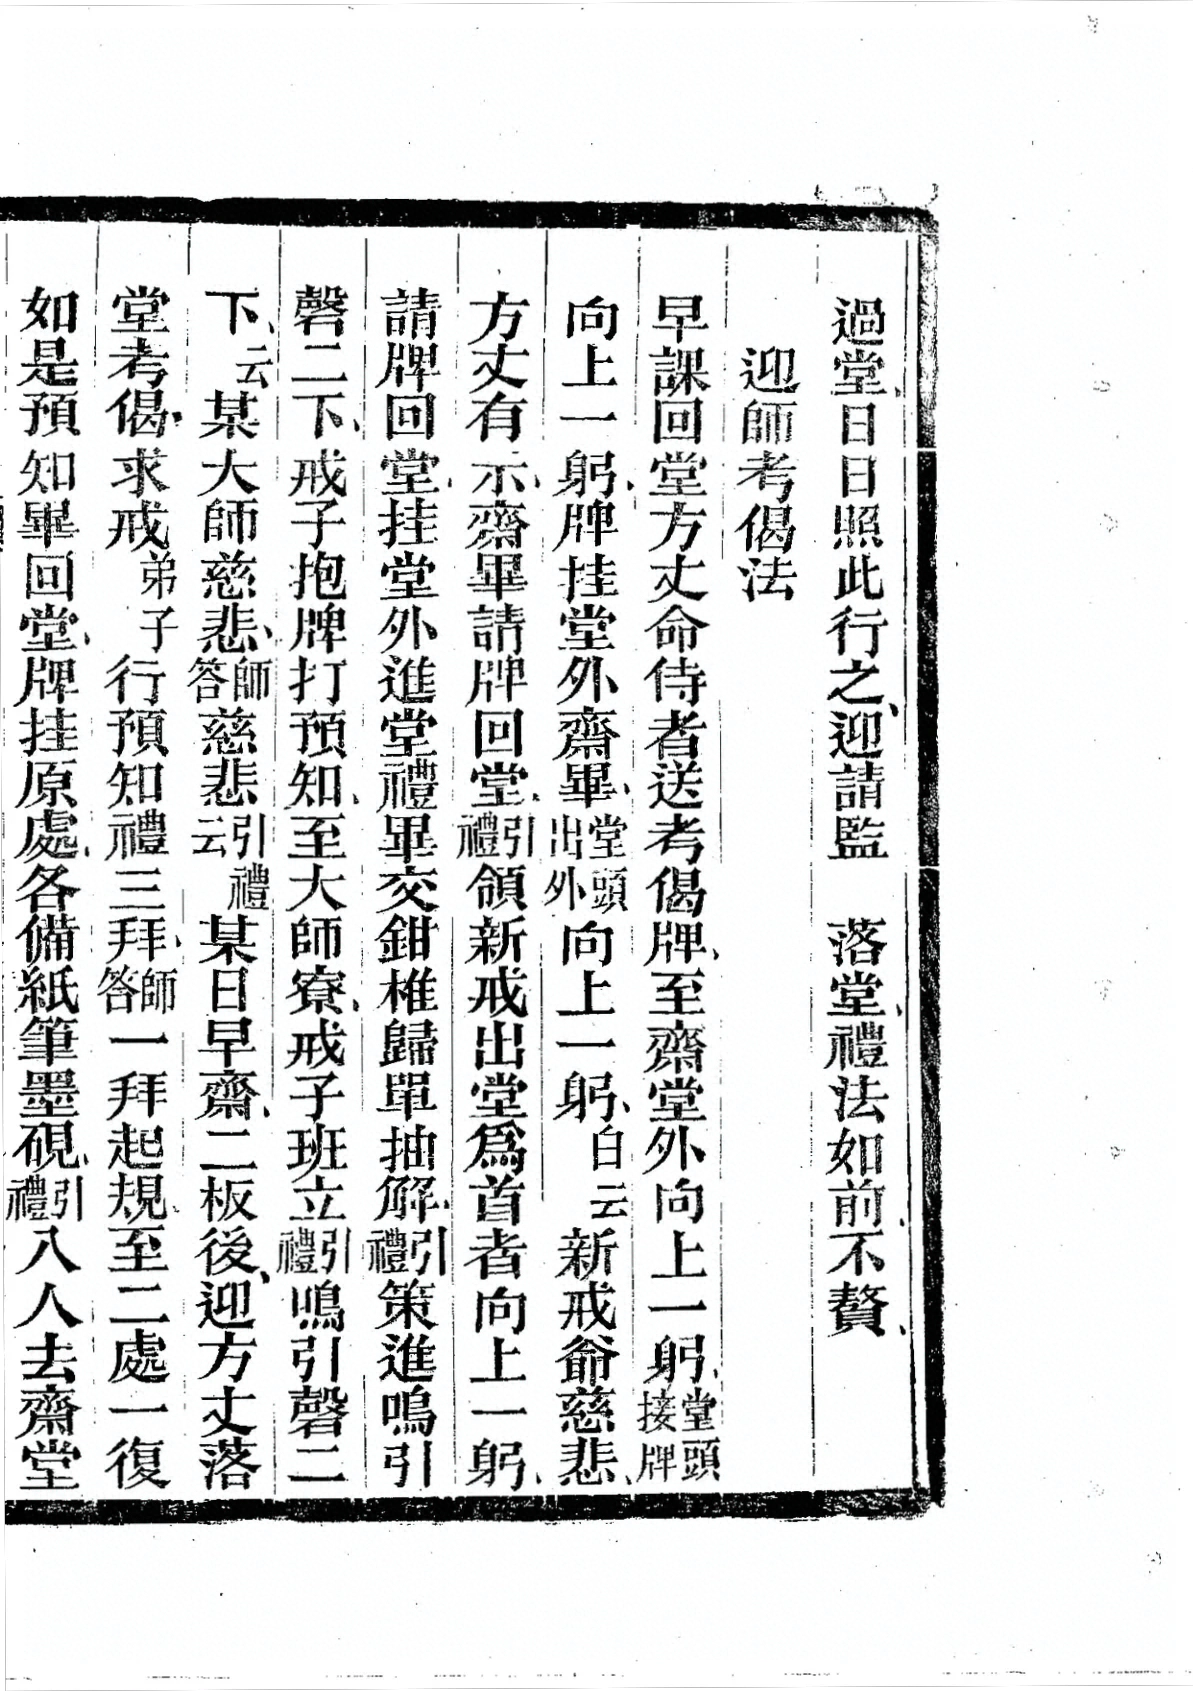 過堂、日日照此行之、迎請監　落堂、禮法如前、不贅、
迎師考偈法
早課回堂方丈命侍者送考偈牌、至齋堂外向上一躬、堂頭接牌
向上一躬、牌挂堂外齋畢、堂頭出外向上一躬、白云新戒爺慈悲、
方丈有示、齋畢請牌回堂、引禮領新戒出堂爲首者向上一躬、
請牌回堂、挂堂外進堂禮畢交鉗椎歸單抽解、引禮策進鳴引
磬二下、戒子抱牌打預知、至大師寮、戒子班立引禮鳴引磬二
下、云某大師慈悲、師答慈悲引禮云某日早齋、二板後、迎方丈落
堂考偈、求戒弟子行預知禮三拜、師答一拜起規、至二處一復
如是預知畢回堂、牌挂原處、各備紙筆墨硯、引禮八人去齋堂